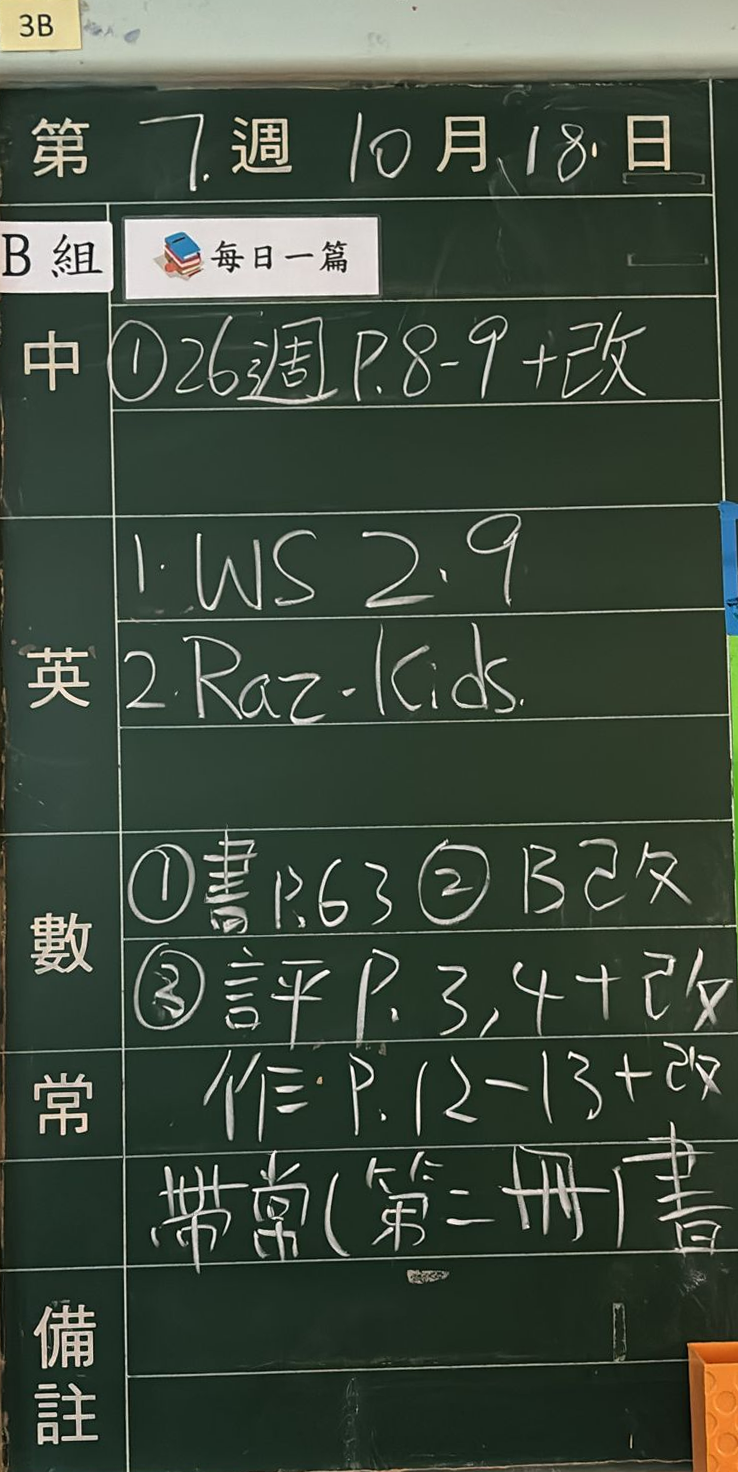 3B
第 7. 週 10 月 18. 日
B 組 每日一篇
中 ①26週 P.8-9+改
英
1. WS 2.9
2. Raz-Kids.
數
①書P.63 ② B改
③評 P. 3,4+改
常 作 P.12-13+改
帶常(第二冊)書
備註